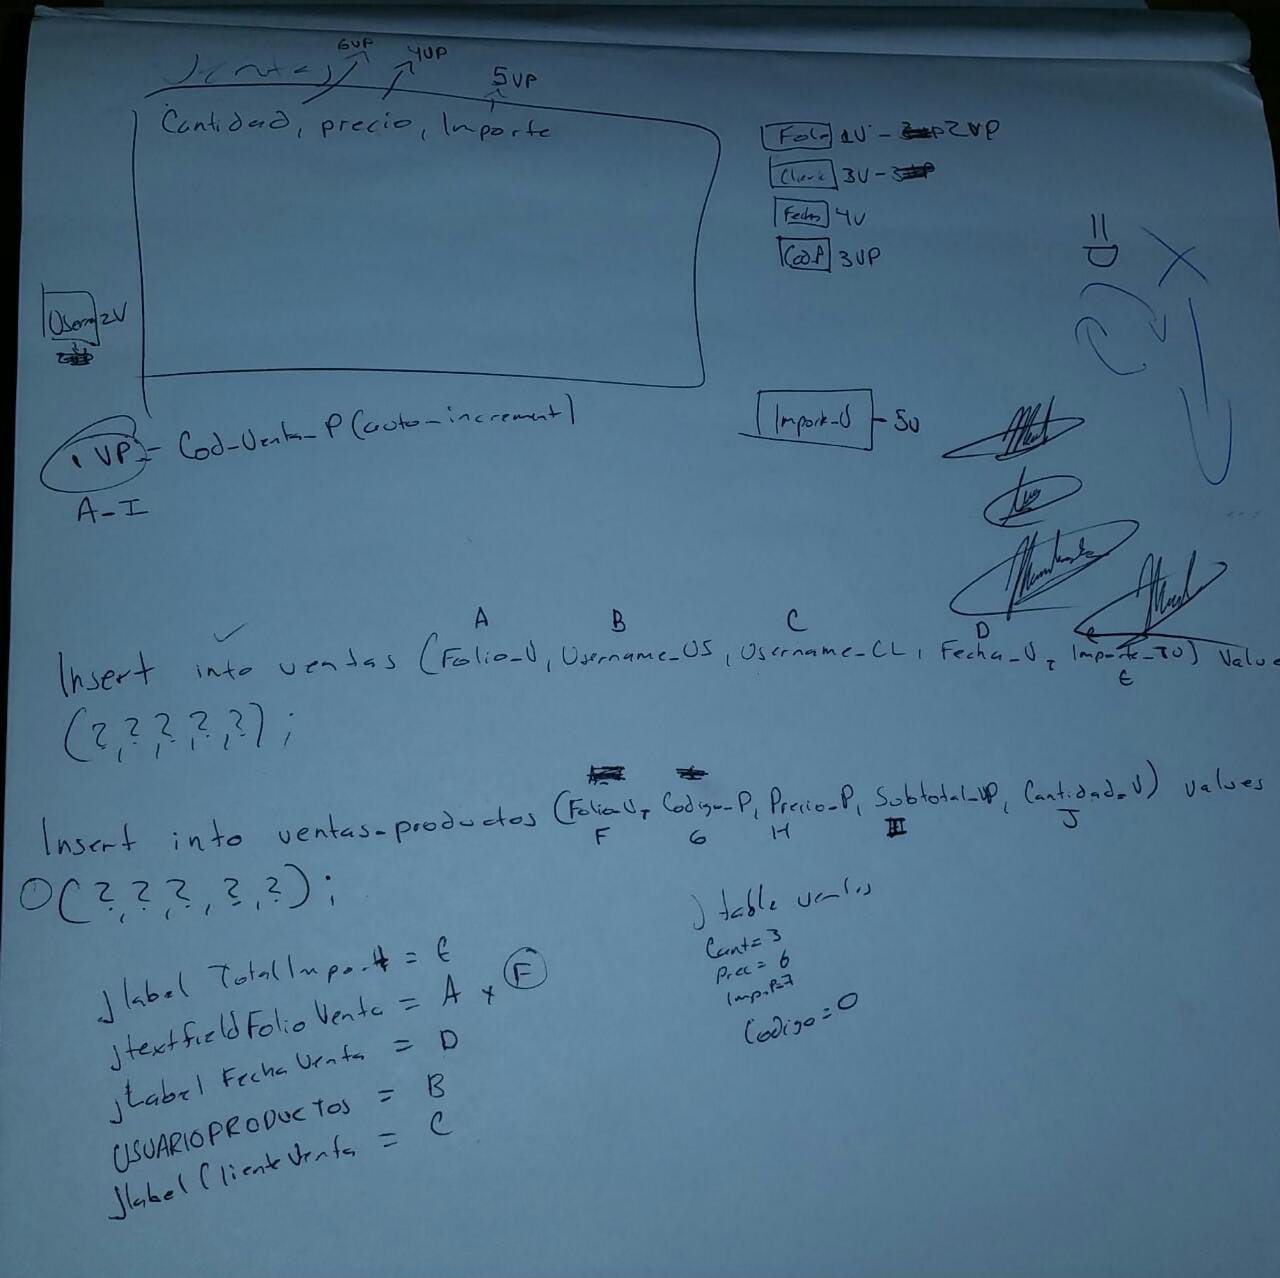 6VP
4VP
5VP
Cantidad, precio, Importe
Folio 1V - 2VP
Cliente 3V -
Fecha 4V
Cod_P 3VP
=D
X
Userna 2V
Importe_V - 5V
1 VP - Cod_Venta_P (auto-increment)
A-I
A B C D
Insert into ventas (Folio_V, Username_US, Username_CL, Fecha_V, Importe_TV) Value
E
(?,?,?,?,?);
Insert into ventas_productos (Folio_V, Codigo_P, Precio_P, Subtotal_VP, Cantidad_V) values
F G H I J
(?,?,?,?,?);
jlabel TotalImport = E
jtextfieldFolioVenta = A x F
jLabel FechaVenta = D
USUARIOPRODUCTOS = B
jlabelClienteVenta = C
jtable ventas
Cant = 3
Prec = 6
Imp.P=7
Codigo = 0